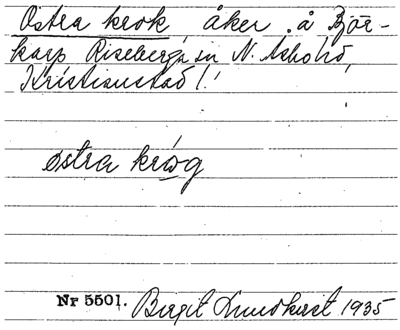 Östra krok, åker å Bjär-
karp Riseberga sn N. Åsbo hd,
Kristianstad l.
östra krog
Nr 5501. Birgit Lundkvist 1935